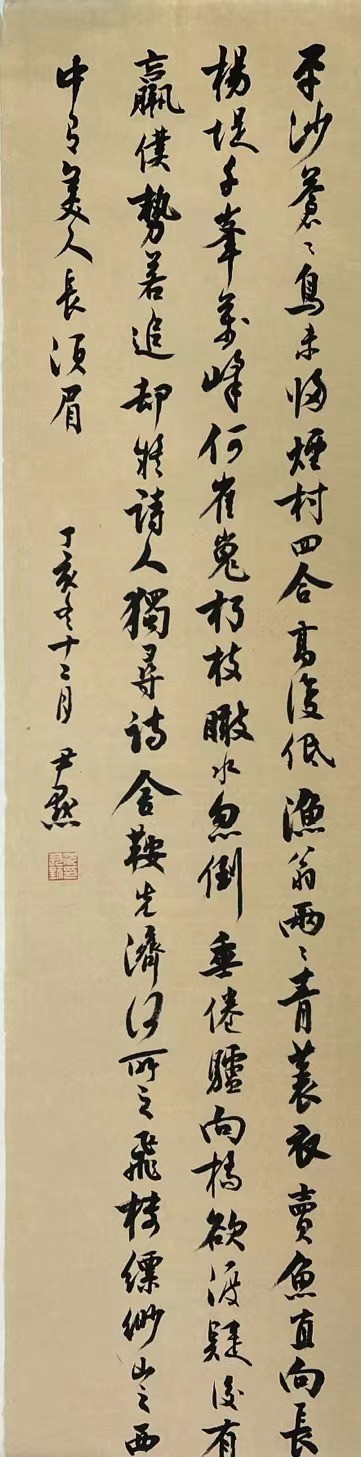 平沙蒼〻鳥未歸煙村四合高復低漁翁兩〻青蓑衣賣魚直向長
楊堤千峯萬峰何崔嵬朽枝瞰水忽倒垂倦驢向橋欲渡疑後有
羸僕勢若追却裝詩人獨尋詩舍鞍先濟何所之飛樓縹緲山之西
中有美人長須眉
丁亥冬十二月 尹默